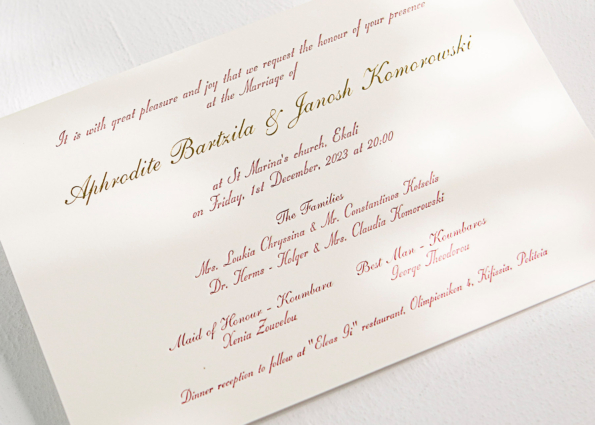 It is with great pleasure and joy that we request the honour of your presence
at the Marriage of
Aphrodite Bartzila & Janosh Komorowski
at St Marina's church, Ekali
on Friday, 1st December, 2023 at 20:00
The Families
Mrs. Loukia Chryssina & Mr. Constantinos Kotselis
Dr. Herms - Holger & Mrs. Claudia Komorowski
Maid of Honour - Koumbara
Xenia Zouvelou
Best Man - Koumbaros
George Theodorou
Dinner reception to follow at "Eleas Gi" restaurant, Olimpionikon 4, Kifissia, Politeia